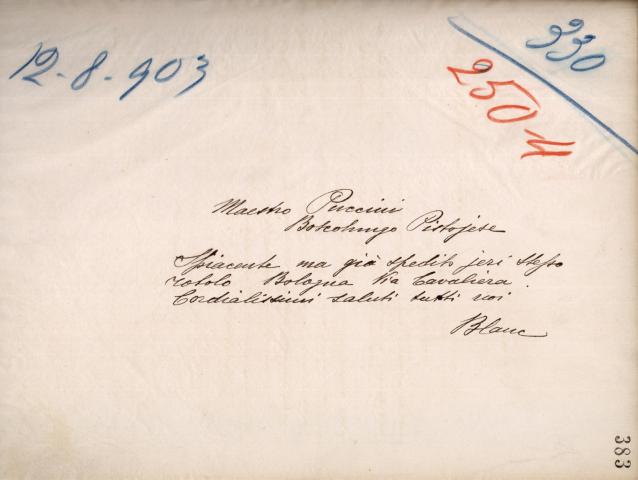 12-8-903
330
250-4
Maestro Puccini
Boscolungo Pistojese
Spiacente ma già spedito jeri stesso
rotolo Bologna Via Cavaliera.
Cordialissimi saluti tutti voi
Blanc
383